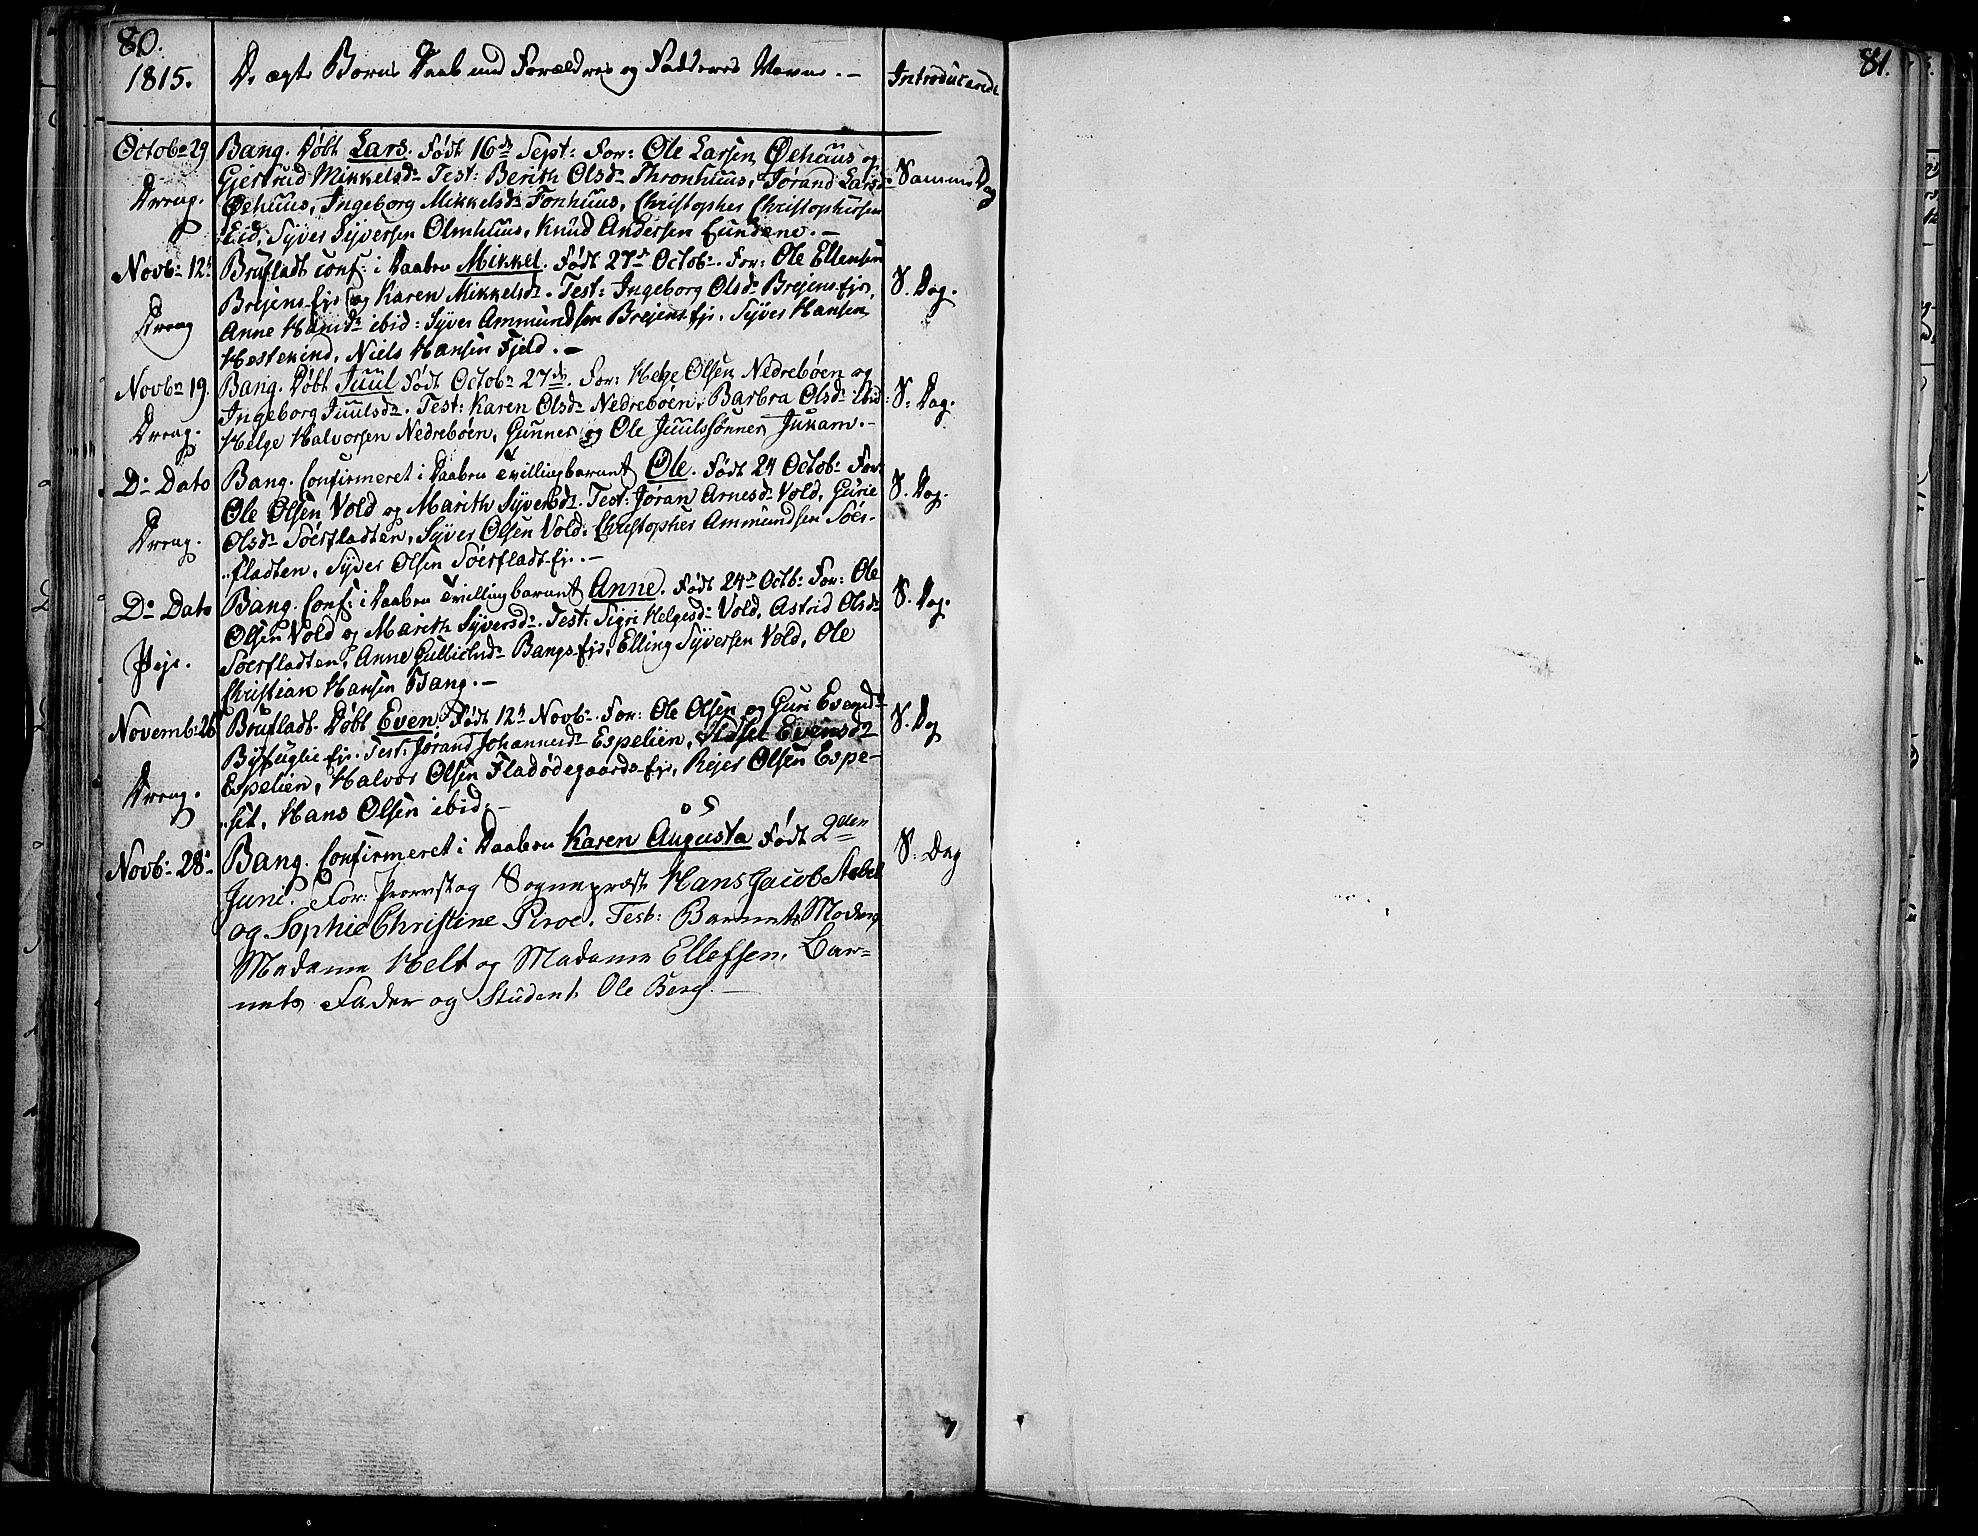 80.
1815. De ægte Børns Daab med Forældres og Fadderes Navne. — Introducerede
Octobr 29 Bang. Døbt Lars. Født 16de Sept: For: Ole Larsen Øehuus og
Gjertrud Mikkelsdr Test: Berith Olsdr Thronhuus, Jørand Larsdr Samme Dag
Dreng. Øehuus, Ingeborg Mikkelsdr Fonhuus, Christopher Christophersen
Eid, Syver Syversen Olmhuus, Knud Andersen Lundene. —
Novbr 12t Brufladt conf: i Daaben Mikkel. Født 27de Octobr. For: Ole Ellensen
Brejens-Ejr og Karen Mikkelsdr. Test: Ingeborg Olsdr Brejens-Ejr, S. Dag.
Dreng Anne Hansdr ibid: Syver Ammundsen Brejens-Ejr. Syver Hansen
Hestekind, Niels Hansen Fjeld. —
Novbr 19. Bang. Døbt Juul Født Octobr 27de. For: Helge Olsen Nedrebøen og
Ingeborg Juulsdr. Test: Karen Olsdr Nedrebøen, Barbra Olsdr ibid: S: Dag.
Dreng. Helge Halvorsen Nedrebøen, Gunner og Ole Juulssønner Jukam. —
Do Dato Bang. Confirmeret i Daaben Tvillingbarnet Ole. Født 24 Octobr For:
Ole Olsen Vold og Marith Syversdr. Test: Jøran Arnesdr Vold, Gurie S. Dag.
Dreng. Olsdr Søerfladten, Syver Olsen Vold, Christopher Ammundsen Søer-
fladten, Syver Olsen Søerfladt-Ejr. —
Do Dato Bang. Conf: i Daaben Tvillingbarnet Anne. Født 24de Octb: For: Ole
Olsen Vold og Marith Syversdr. Test: Sigri Helgesdr Vold, Astrid Olsdr S. Dag.
Pige. Søerfladten, Anne Gulbrandsdr Bangs-Ejr, Elling Syversen Vold, Ole
Christian Hansen Bang. —
Novemb: 26 Brufladt. Døbt Even Født 12t Novbr. For: Ole Olsen og Guri Evensdr S. Dag
Byfuglie-Ejr. Test: Jørand Johannesdr Espelien, Sidsel Evensdr
Dreng. Espelien, Halvor Olsen Fladødegaards-Ejr, Rejer Olsen Espe-
set, Hans Olsen ibid. —
Novb: 28: Bang. Confirmeret i Daaben Karen Augusta Født 2den S: Dag
Juni. For: Provst og Sognepræst Hans Jacob Stabel
og Sophie Christine Piroe. Test: Barnets Moder,
Madame Helt og Madame Ellefsen, Bar-
nets Fader og Student Ole Berg. —
81.